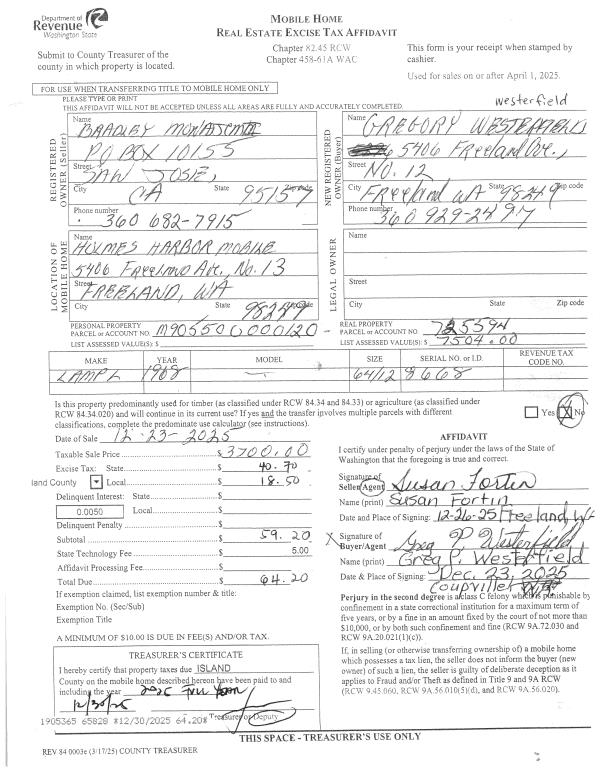 Department of
Revenue
Washington State
MOBILE HOME
REAL ESTATE EXCISE TAX AFFIDAVIT
Submit to County Treasurer of the
county in which property is located.
Chapter 82.45 RCW
Chapter 458-61A WAC
This form is your receipt when stamped by
cashier.
Used for sales on or after April 1, 2025.
FOR USE WHEN TRANSFERRING TITLE TO MOBILE HOME ONLY
PLEASE TYPE OR PRINT
THIS AFFIDAVIT WILL NOT BE ACCEPTED UNLESS ALL AREAS ARE FULLY AND ACCURATELY COMPLETED.
Westerfield
REGISTERED
OWNER (Seller)
Name
BRADLEY
PO BOX 10155
Street
SAN JOSE,
City State Zip code
CA 95157
Phone number
360 682-7915
NEW REGISTERED
OWNER (Buyer)
Name
GREGORY
5406 Freeland Ave.,
Street
No. 12
City State Zip code
Freeland WA 98249
Phone number
360 929-2497
LOCATION OF
MOBILE HOME
Name
HOLMES HARBOR MOBILE
5406 Freeland Ave, No. 13
Street
FREELAND, WA
City State Zip code
98249
LEGAL OWNER
Name
Street
City State Zip code
PERSONAL PROPERTY
PARCEL or ACCOUNT NO.
LIST ASSESSED VALUE(S): $
REAL PROPERTY
PARCEL or ACCOUNT NO.
LIST ASSESSED VALUE(S): $ 7504.00
MAKE YEAR MODEL SIZE SERIAL NO. or I.D. REVENUE TAX
CODE NO.
LAMPL 64/12 8668
Is this property predominantly used for timber (as classified under RCW 84.34 and 84.33) or agriculture (as classified under
RCW 84.34.020) and will continue in its current use? If yes and the transfer involves multiple parcels with different
classifications, complete the predominate use calculator (see instructions).
Yes X No
Date of Sale 12-23-2025
Taxable Sale Price $ 3700.00
Excise Tax: State $ 40.70
land County Local $ 18.50
Delinquent Interest: State $
0.0050 Local $
Delinquent Penalty $
Subtotal $ 59.20
State Technology Fee $ 5.00
Affidavit Processing Fee $
Total Due $ 64.20
If exemption claimed, list exemption number & title:
Exemption No. (Sec/Sub)
Exemption Title
A MINIMUM OF $10.00 IS DUE IN FEE(S) AND/OR TAX.
TREASURER'S CERTIFICATE
I hereby certify that property taxes due ISLAND
County on the mobile home described hereon have been paid to and
including the year 2025
12/30/25
Treasurer or Deputy
1905365 65828 12/30/2025 64.20
AFFIDAVIT
I certify under penalty of perjury under the laws of the State of
Washington that the foregoing is true and correct.
Signature of
Seller/Agent Susan Fortin
Name (print) Susan Fortin
Date and Place of Signing: 12-26-25 Freeland, WA
X Signature of
Buyer/Agent Greg P. Westerfield
Name (print) Greg P. Westerfield
Date & Place of Signing: Dec. 23, 2025
Coupville WA
Perjury in the second degree is a class C felony which is punishable by
confinement in a state correctional institution for a maximum term of
five years, or by a fine in an amount fixed by the court of not more than
$10,000, or by both such confinement and fine (RCW 9A.72.030 and
RCW 9A.20.021(1)(c)).
If, in selling (or otherwise transferring ownership of) a mobile home
which possesses a tax lien, the seller does not inform the buyer (new
owner) of such a lien, the seller is guilty of deliberate deception as it
applies to Fraud and/or Theft as defined in Title 9 and 9A RCW
(RCW 9.45.060, RCW 9A.56.010(5)(d), and RCW 9A.56.020).
THIS SPACE - TREASURER'S USE ONLY
REV 84 0003e (3/17/25) COUNTY TREASURER